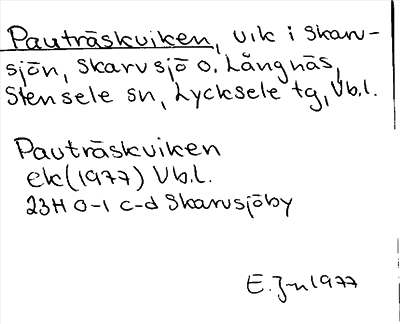 Pauträskviken, vik i Skarv-
sjön, Skarvsjö o. Långnäs,
Stensele sn, Lycksele tg, Vb.l.
Pauträskviken
ek (1977) Vb.l.
23H 0-1 c-d Skarvsjöby
E. Jn 1977